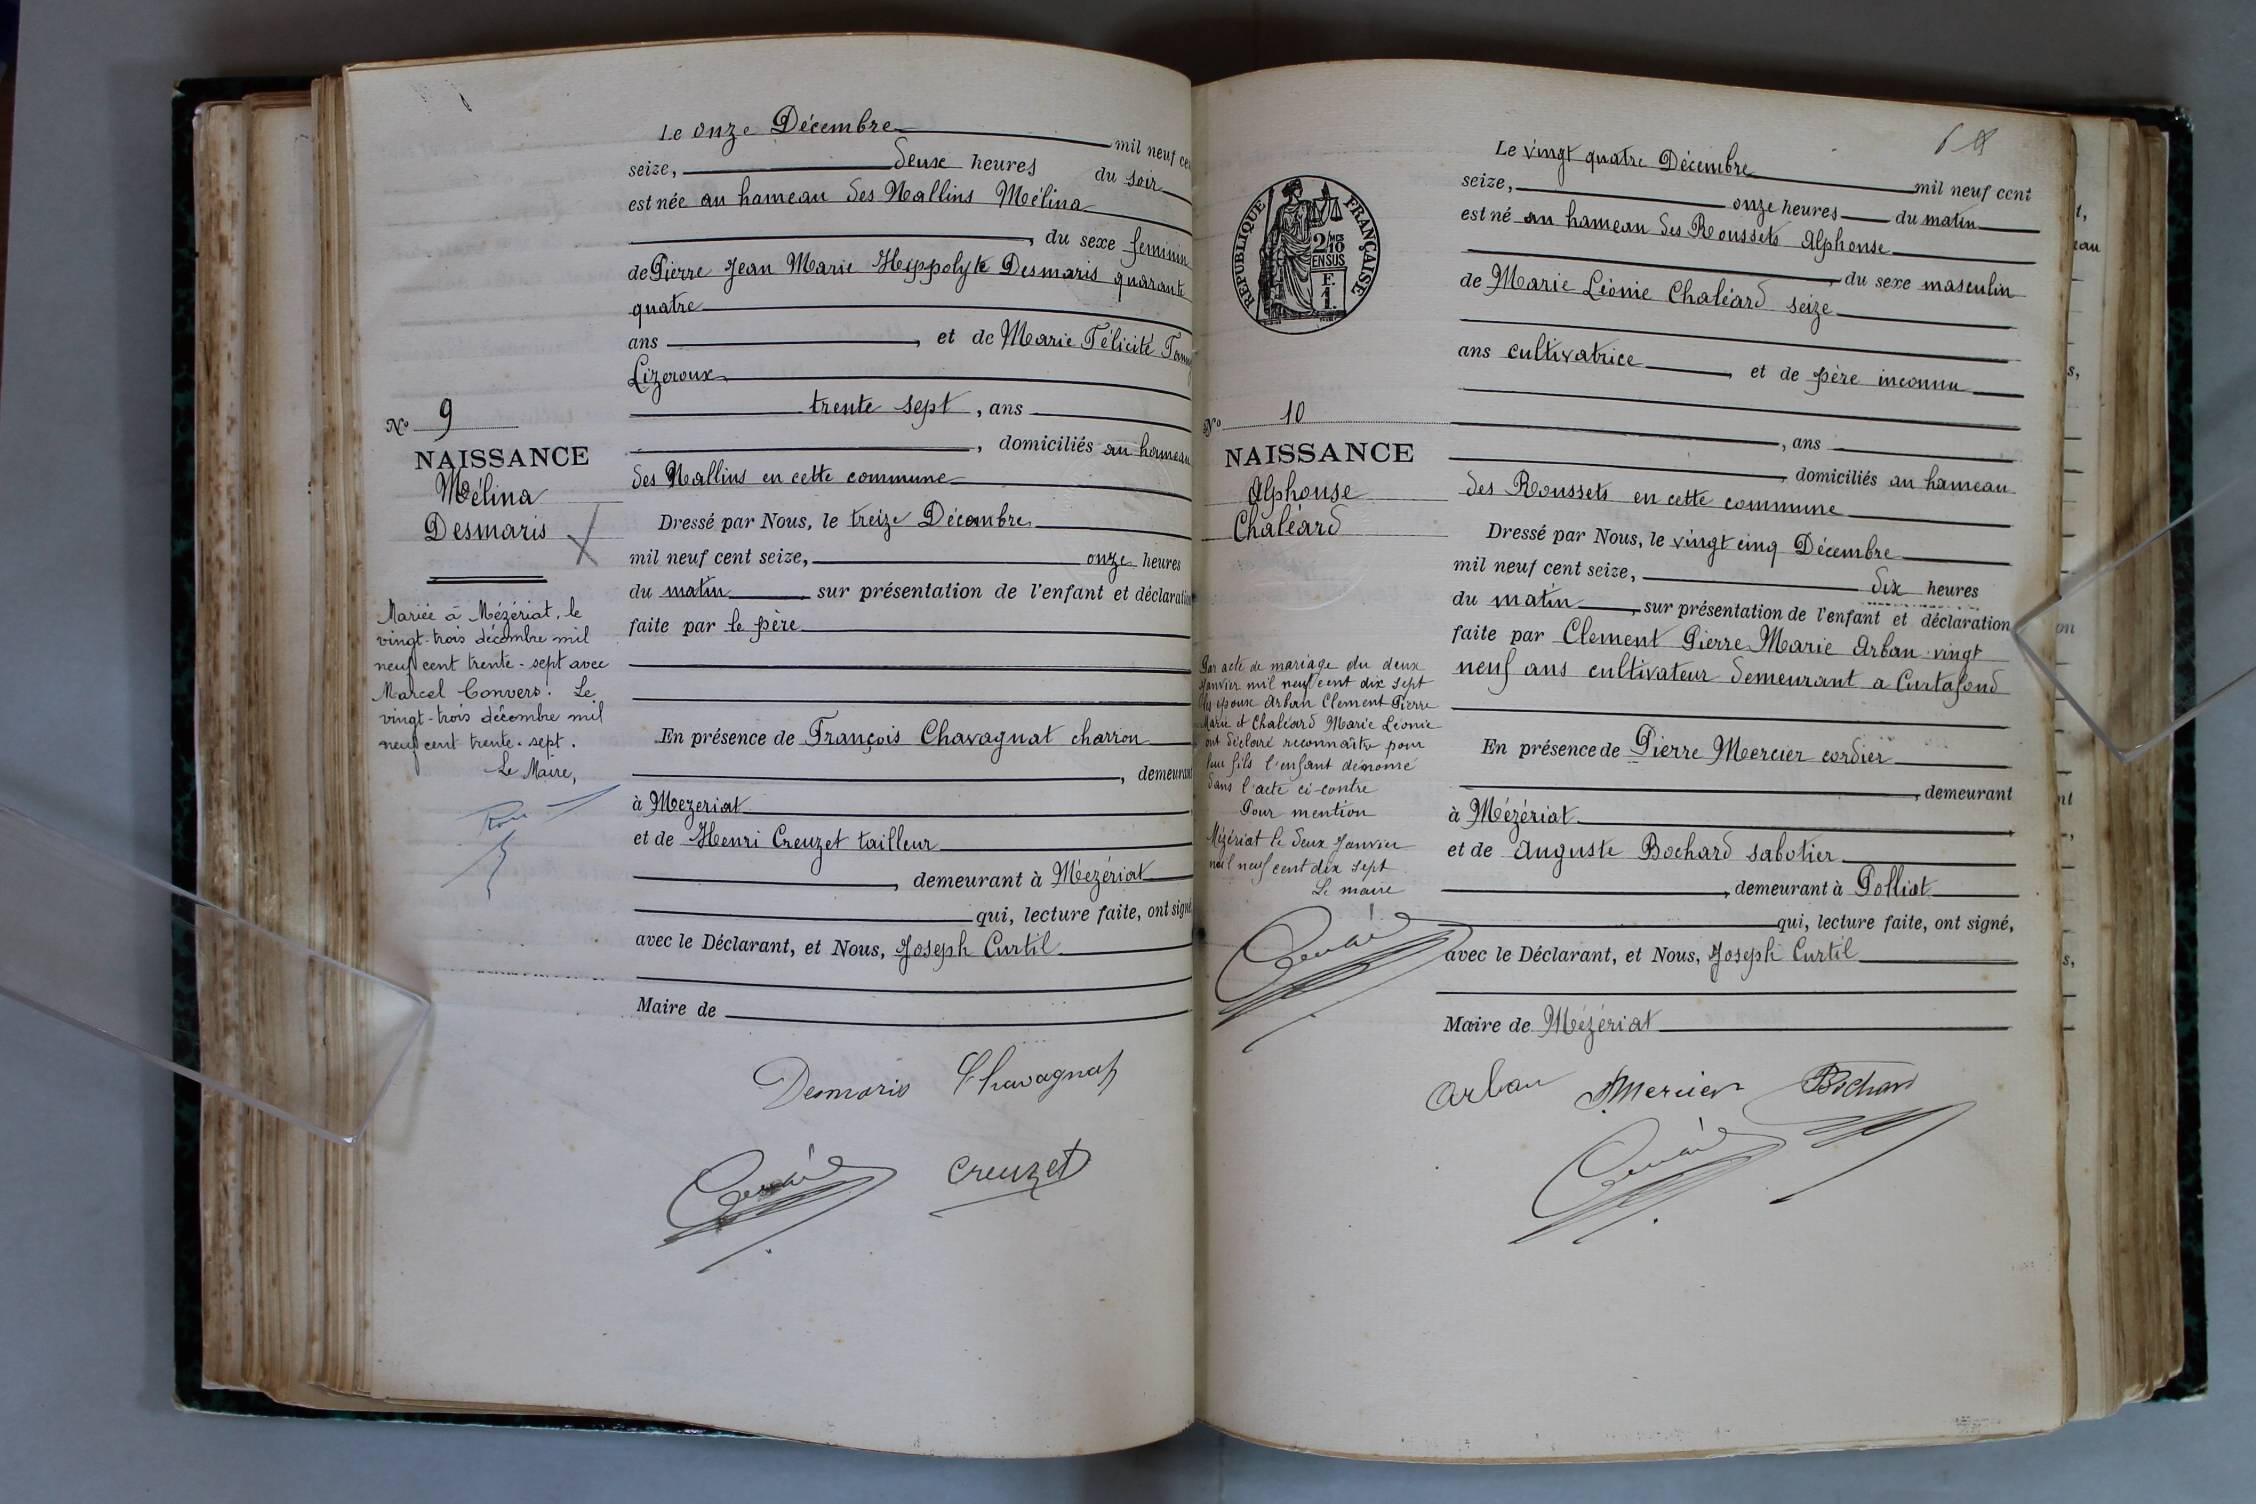 Le onze Décembre mil neuf ce
seize, deux heures du soir
est née au hameau des Nallins Mélina
, du sexe feminin
de Pierre Jean Marie Hyppolyte Desmaris quarante
quatre
ans , et de Marie Félicité
Lizeroux
trente sept , ans
, domiciliés au hameau
des Nallins en cette commune
Dressé par Nous, le treize Décembre
mil neuf cent seize, onze heures
du matin sur présentation de l'enfant et déclaration
faite par le père
En présence de François Chavagnat charron
, demeurant
à Mezeriat
et de Henri Creuzet tailleur
, demeurant à Mézériat
qui, lecture faite, ont signé
avec le Déclarant, et Nous, Joseph Curtil
Maire de
Desmaris Chavagnat
Creuzet
No 9
NAISSANCE
Mélina
Desmaris
Mariée à Mézériat, le
vingt-trois décembre mil
neuf cent trente-sept avec
Marcel Convers. Le
vingt-trois décembre mil
neuf cent trente-sept.
Le Maire,
RÉPUBLIQUE FRANÇAISE
2/10 MES
EN SUS
F.
1.
Le vingt quatre Décembre mil neuf cent
seize, onze heures du matin
est né au hameau des Roussets Alphonse
, du sexe masculin
de Marie Léonie Chaléard seize
ans cultivatrice , et de père inconnu
, ans
, domiciliés au hameau
des Roussets en cette commune
Dressé par Nous, le vingt cinq Décembre
mil neuf cent seize, dix heures
du matin , sur présentation de l'enfant et déclaration
faite par Clement Pierre Marie Arban vingt
neuf ans cultivateur demeurant a Curtafond
En présence de Pierre Mercier cordier
, demeurant
à Mézériat
et de Auguste Bochard sabotier
, demeurant à Polliat
qui, lecture faite, ont signé,
avec le Déclarant, et Nous, Joseph Curtil
Maire de Mézériat
Arban Mercier Bochard
No 10
NAISSANCE
Alphonse
Chaléard
Par acte de mariage du deux
Janvier mil neuf cent dix sept
les époux Arban Clement Pierre
Marie et Chaléard Marie Léonie
ont déclaré reconnaître pour
leur fils l'enfant dénomé
dans l'acte ci-contre
Pour mention
Mézériat le deux Janvier
mil neuf cent dix sept
Le maire